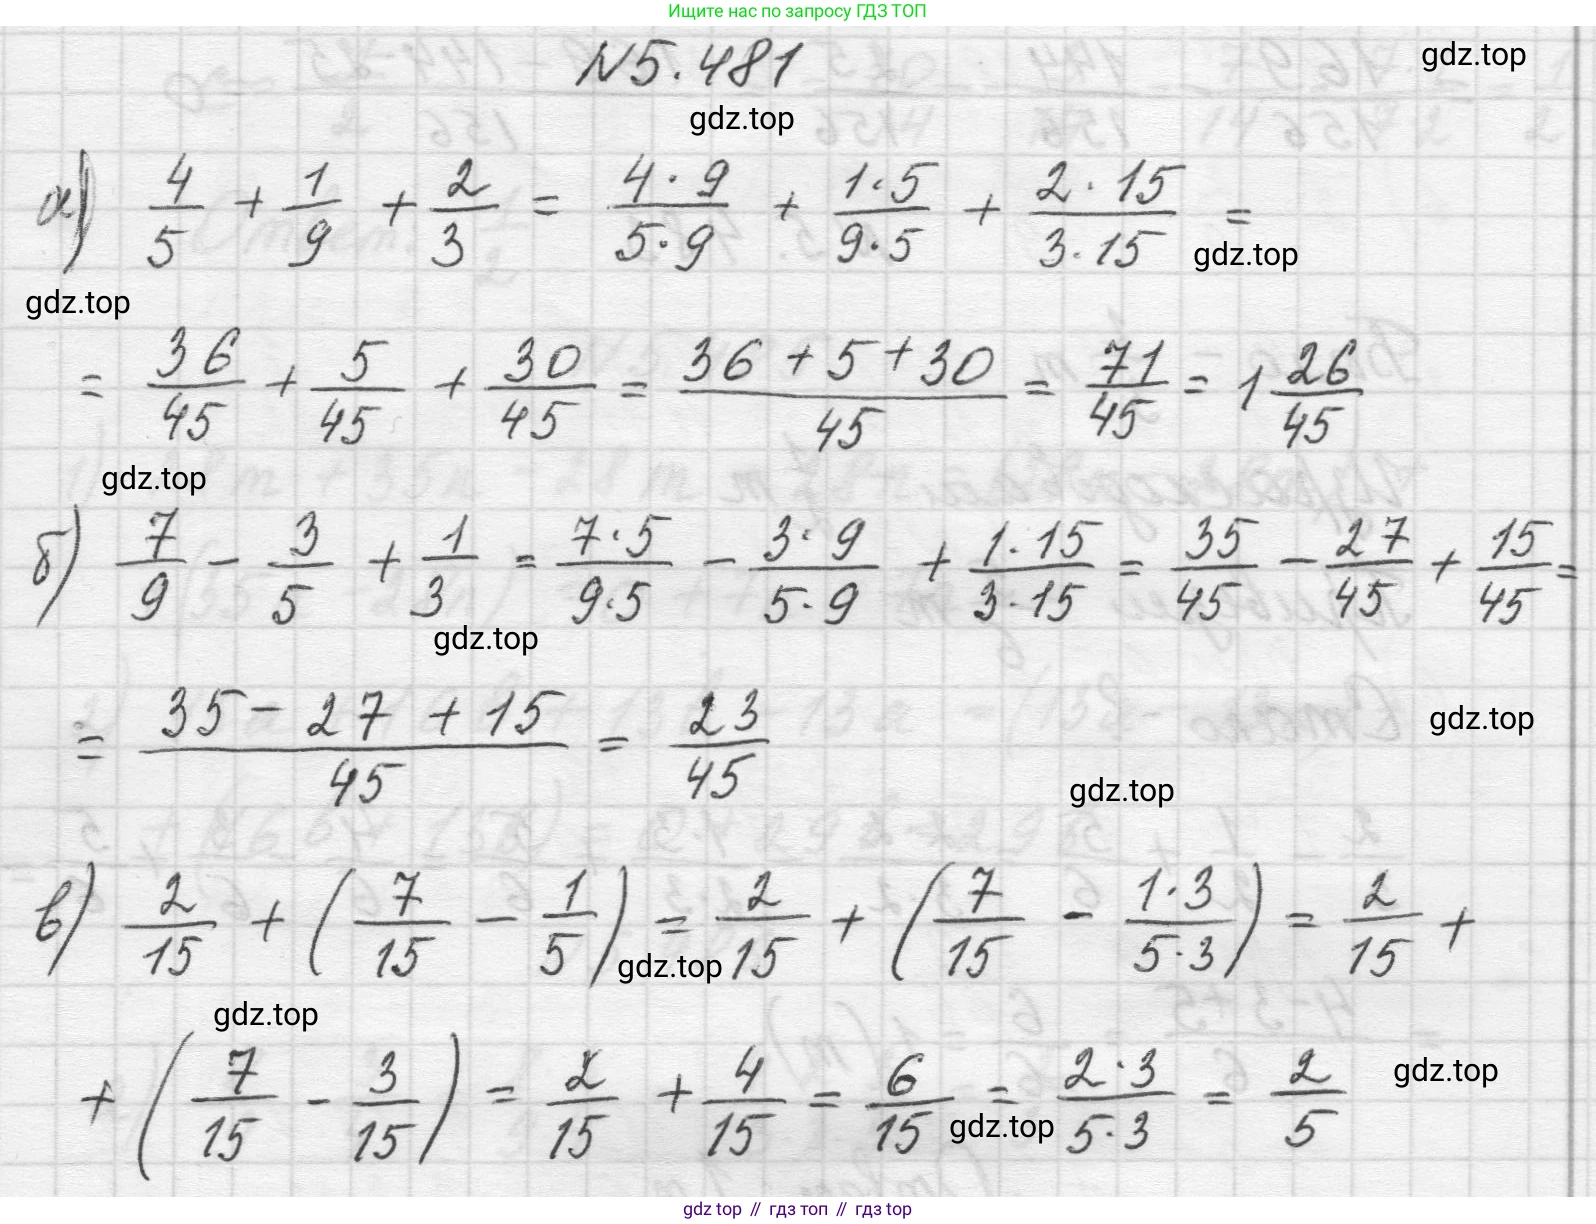 Ищите нас по запросу ГДЗ ТОП
N5.481
gdz.top
gdz.top
а) 4/5 + 1/9 + 2/3 = 4·9/5·9 + 1·5/9·5 + 2·15/3·15 =
gdz.top
gdz.top
= 36/45 + 5/45 + 30/45 = 36+5+30/45 = 71/45 = 1 26/45
gdz.top
б) 7/9 - 3/5 + 1/3 = 7·5/9·5 - 3·9/5·9 + 1·15/3·15 = 35/45 - 27/45 + 15/45 =
gdz.top
= 35-27+15/45 = 23/45
gdz.top
gdz.top
в) 2/15 + (7/15 - 1/5) = 2/15 + (7/15 - 1·3/5·3) = 2/15 +
gdz.top
gdz.top
+ (7/15 - 3/15) = 2/15 + 4/15 = 6/15 = 2·3/5·3 = 2/5
gdz.top
gdz.top
gdz top // гдз топ // гдз top